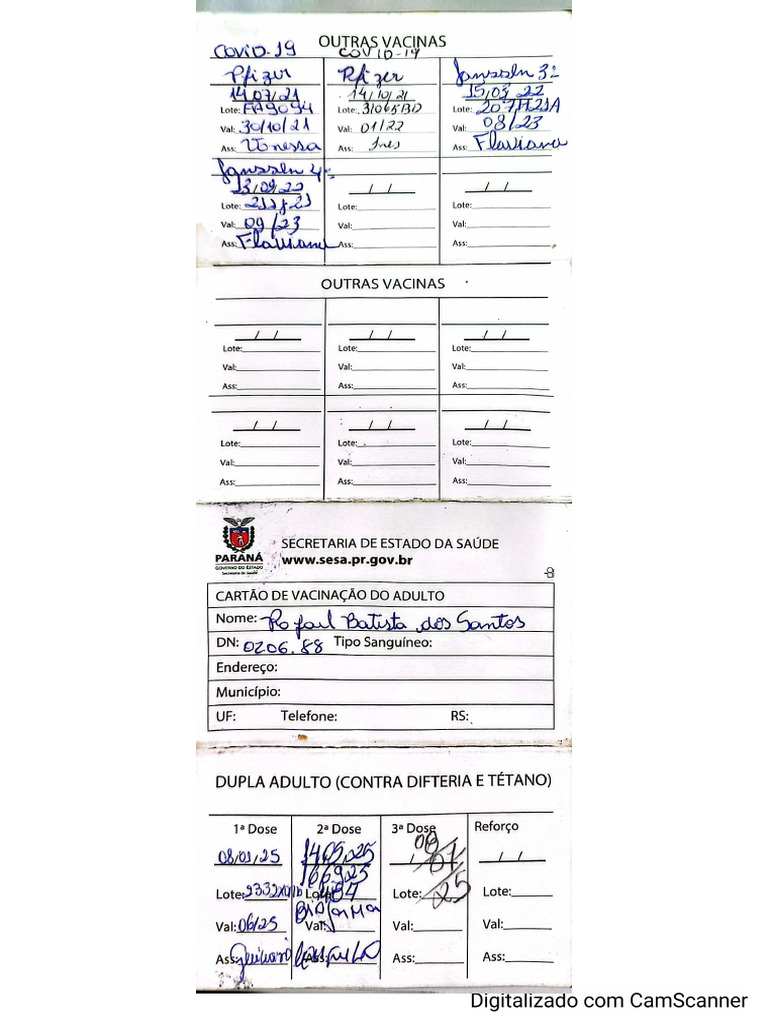 OUTRAS VACINAS
Covid-19 COVID-19
Pfizer Pfizer Janssen 3ª
14/07/21 14/10/21 15/03/22
Lote: FA9094 Lote: 31065BD Lote: 207H21A
Val: 30/10/21 Val: 01/22 Val: 08/23
Ass: Vanessa Ass: Ines Ass: Flaviana
Janssen 4ª
13/09/22 / / / /
Lote: Lote: Lote:
Val: 09/23 Val: Val:
Ass: Flaviana Ass: Ass:
OUTRAS VACINAS
/ / / / / /
Lote: Lote: Lote:
Val: Val: Val:
Ass: Ass: Ass:
/ / / / / /
Lote: Lote: Lote:
Val: Val: Val:
Ass: Ass: Ass:
PARANÁ
GOVERNO DO ESTADO
Secretaria da Saúde
SECRETARIA DE ESTADO DA SAÚDE
www.sesa.pr.gov.br
CARTÃO DE VACINAÇÃO DO ADULTO
Nome: Rafael Batista dos Santos
DN: 0206.88 Tipo Sanguíneo:
Endereço:
Município:
UF: Telefone: RS:
DUPLA ADULTO (CONTRA DIFTERIA E TÉTANO)
1ª Dose 2ª Dose 3ª Dose Reforço
08/01/25 14/05/25 09/07/25 / /
Lote: Lote: Lote: Lote:
Val: 06/25 Val: Val: Val:
Ass: Ass: Ass: Ass:
Digitalizado com CamScanner